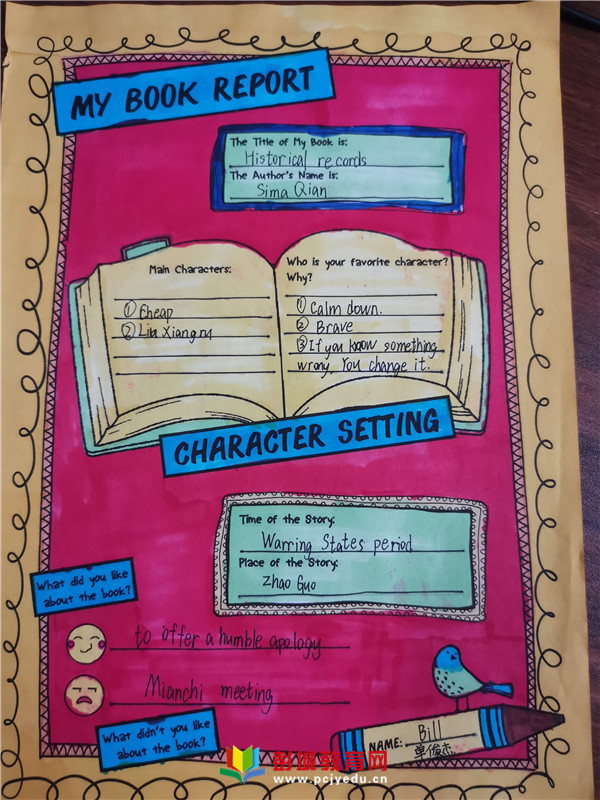 MY BOOK REPORT
The Title of My Book is:
Historical records
The Author's Name is:
Sima Qian
Main Characters:
① Cheap
② Lin Xiangru
Who is your favorite character?
Why?
① Calm down.
② Brave
③ If you know something
wrong, You change it.
CHARACTER SETTING
Time of the Story:
Warring States period
Place of the Story:
Zhao Guo
What did you like
about the book?
to offer a humble apology
Mianchi meeting
What didn't you like
about the book?
NAME: Bill
单俊杰
教育网
www.pcjyedu.cn